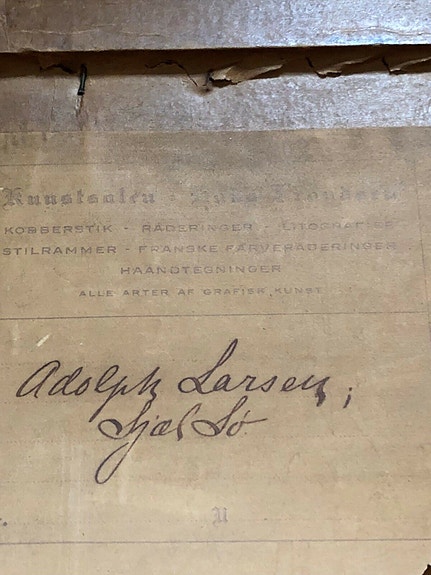 Kunstsalen
KOBBERSTIK - RADERINGER - LITOGRAFIER
STILRAMMER - FRANSKE FARVERADERINGER
HAANDTEGNINGER
ALLE ARTER AF GRAFISK KUNST
Adolph Larsen;
Sjæl Sø